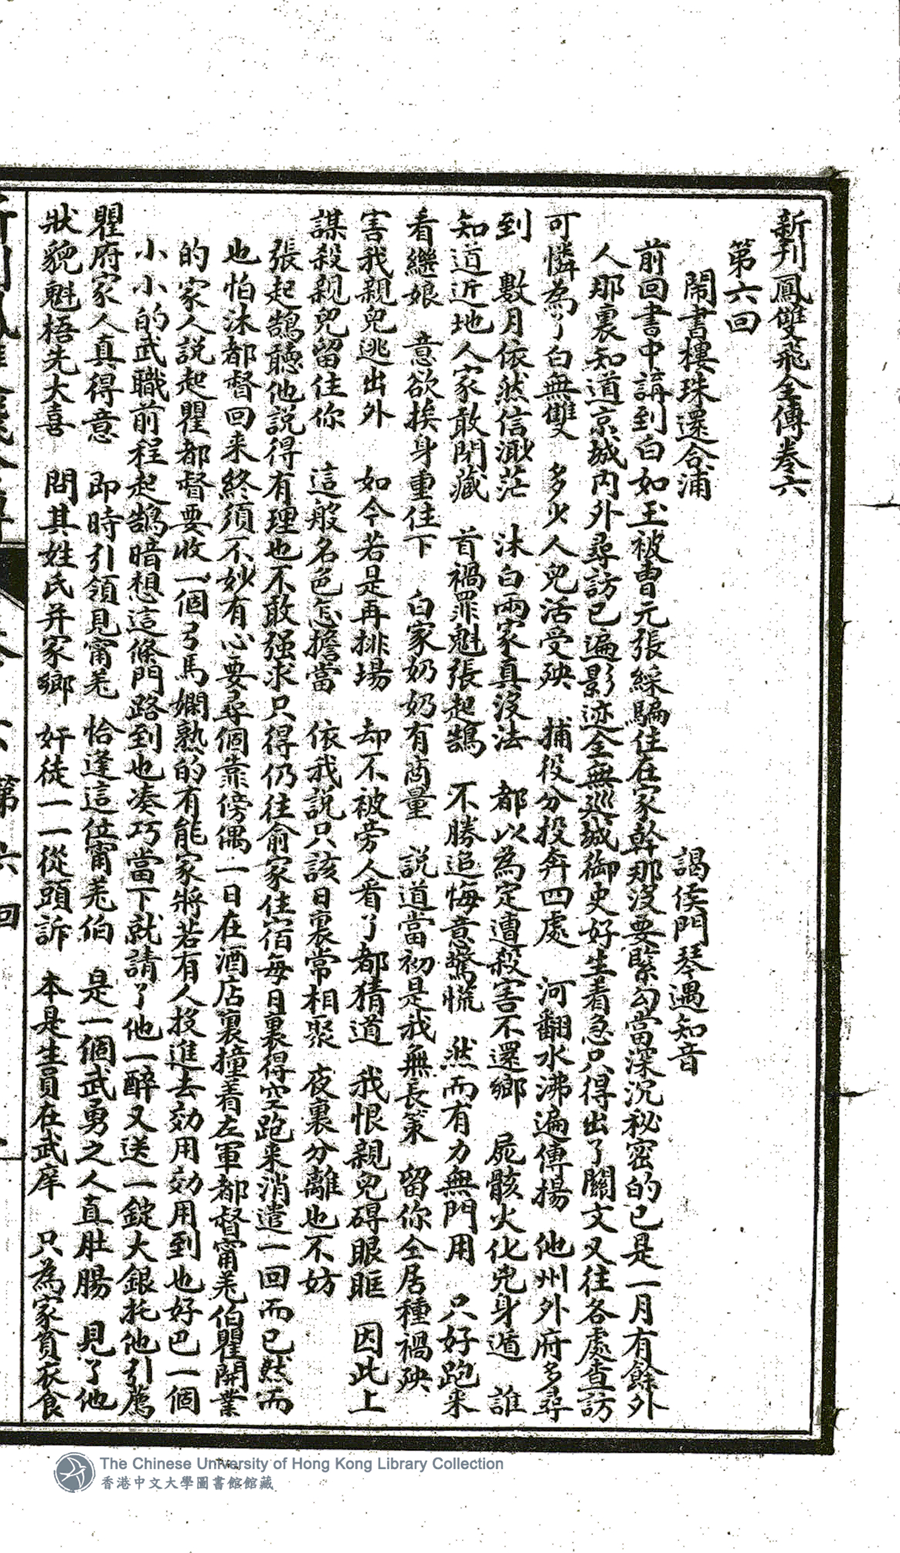 新刊鳳雙飛全傳卷六
第六回
鬧書樓珠還合浦　謁侯門琴遇知音
前回書中講到白如玉被曹元張綵騙住在家幹那沒要緊勾當深沉秘密的已是一月有餘外
人那裏知道京城內外尋訪已遍影迹全無巡城御史好生着急只得出了關文又往各處查訪
可憐為了白無雙　多少人兒活受殃　捕役分投奔四處　河翻水沸遍傳揚　他州外府多尋
到　數月依然信渺茫　沐白兩家真沒法　都以為定遭殺害不還鄉　屍骸火化兇身遁　誰
知道近地人家敢閉藏　首禍罪魁張起鵠　不勝追悔意驚慌　然而有力無門用　只好跑来
看繼娘　意欲挨身重住下　白家奶奶有商量　說道當初是我無長策　留你仝居種禍殃
害我親兒逃出外　如今若是再排場　却不被旁人看了都猜道　我恨親兒碍眼眶　因此上
謀殺親兒留住你　這般名色怎擔當　依我說只該日裏常相聚　夜裏分離也不妨
張起鵠聽他說得有理也不敢强求只得仍往俞家住宿每日裏得空跑来消遣一回而已然而
也怕沐都督回来終須不妙有心要尋個靠傍偶一日在酒店裏撞着左軍都督甯羌伯瞿開業
的家人說起瞿都督要收一個弓馬嫻熟的有能家將若有人投進去効用効用到也好巴一個
小小的武職前程起鵠暗想這條門路到也凑巧當下就請了他一醉又送一錠大銀托他引薦
瞿府家人真得意　即時引領見甯羌　恰逢這位甯羌伯　是一個武勇之人直肚腸　見了他
狀貌魁梧先大喜　問其姓氏并家鄉　奸徒一一從頭訴　本是生員在武庠　只為家貧衣食
第六回
The Chinese University of Hong Kong Library Collection
香港中文大學圖書館館藏